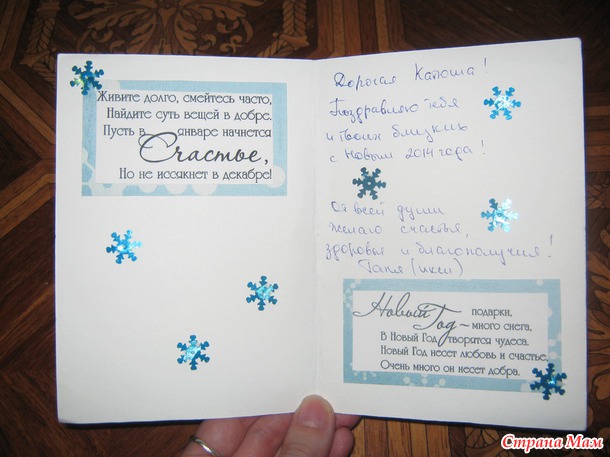 Живите долго, смейтесь часто,
Найдите суть вещей в добре.
Пусть в январе начнется
Счастье,
Но не иссякнет в декабре!
Дорогая Катюша!
Поздравляю тебя
и твоих близких
с Новым 2014 годом!
От всей души
желаю счастья,
здоровья и благополучия!
Таня (икси)
Новый Год – подарки,
много снега,
В Новый Год творятся чудеса.
Новый Год несет любовь и счастье,
Очень много он несет добра.
Страна Мам